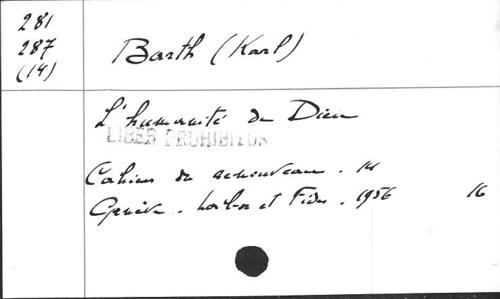 281
287
(14)
Barth (Karl)
L'humanité de Dieu
LIBER PROHIBITUS
Cahiers du renouveau . 14
Genève . Labor et Fides . 1956 16